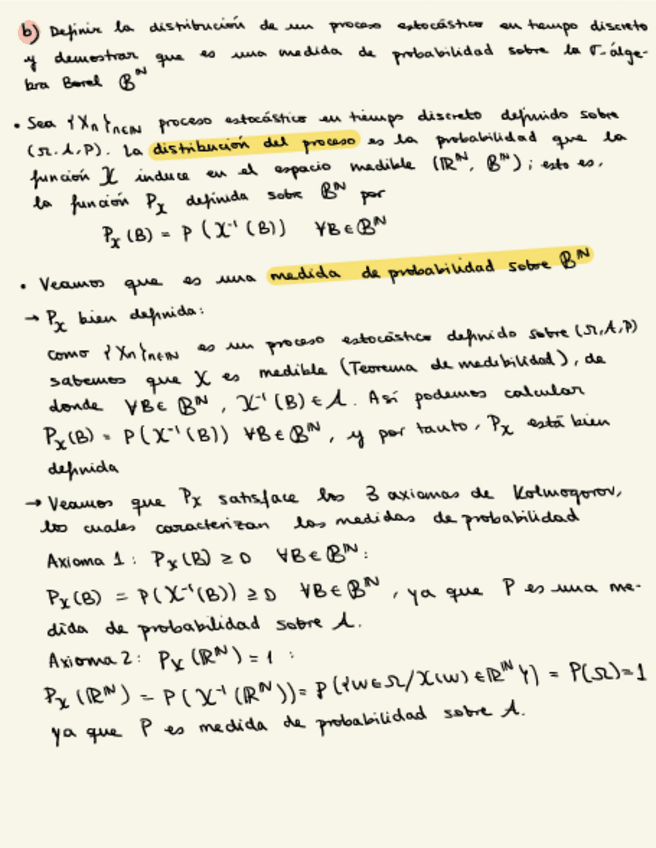 b) Definir la distribución de un proceso estocástico en tiempo discreto
y demostrar que es una medida de probabilidad sobre la σ-álge-
bra Borel 𝔹^ℕ
• Sea {Xn}n∈ℕ proceso estocástico en tiempo discreto definido sobre
(Ω, A, P). La distribución del proceso es la probabilidad que la
función X induce en el espacio medible (ℝ^ℕ, 𝔹^ℕ); esto es,
la función Px definida sobre 𝔹^ℕ por
Px(B) = P(X⁻¹(B)) ∀B∈𝔹^ℕ
• Veamos que es una medida de probabilidad sobre 𝔹^ℕ
→ Px bien definida:
como {Xn}n∈ℕ es un proceso estocástico definido sobre (Ω,A,P)
sabemos que X es medible (Teorema de medibilidad), de
donde ∀B∈𝔹^ℕ, X⁻¹(B)∈A. Así podemos calcular
Px(B) = P(X⁻¹(B)) ∀B∈𝔹^ℕ, y por tanto, Px está bien
definida
→ Veamos que Px satisface los 3 axiomas de Kolmogorov,
los cuales caracterizan las medidas de probabilidad
Axioma 1: Px(B) ≥ 0 ∀B∈𝔹^ℕ:
Px(B) = P(X⁻¹(B)) ≥ 0 ∀B∈𝔹^ℕ, ya que P es una me-
dida de probabilidad sobre A.
Axioma 2: Px(ℝ^ℕ) = 1 :
Px(ℝ^ℕ) = P(X⁻¹(ℝ^ℕ)) = P({w∈Ω/X(w)∈ℝ^ℕ}) = P(Ω)=1
ya que P es medida de probabilidad sobre A.